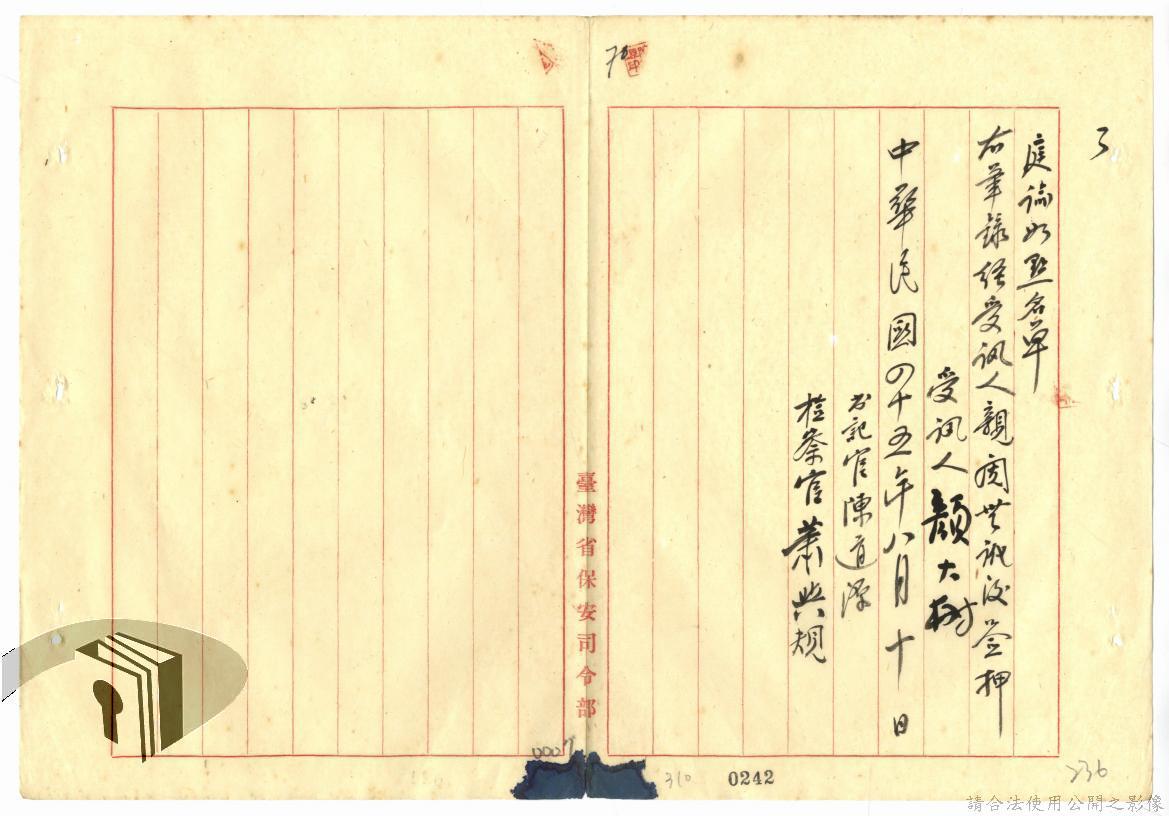 庭諭如點名單
右筆錄經受訊人親閱無訛後簽押
受訊人 顏大樹
中華民國四十五年八月十日
書記官陳道源
檢察官蕭與規
臺灣省保安司令部
0007
310
0242
236
請合法使用公開之影像